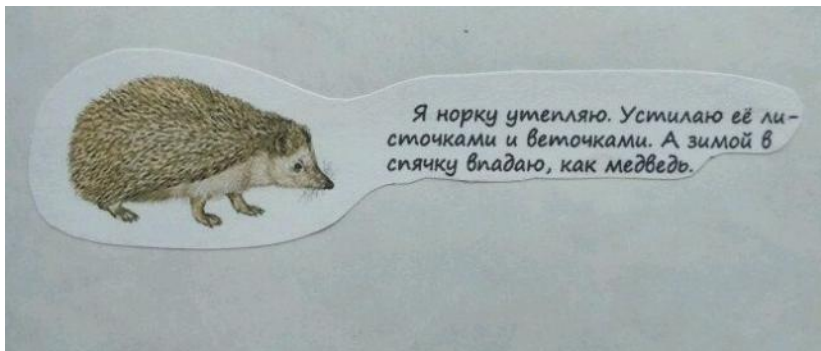 Я норку утепляю. Устилаю её ли-
сточками и веточками. А зимой в
спячку впадаю, как медведь.